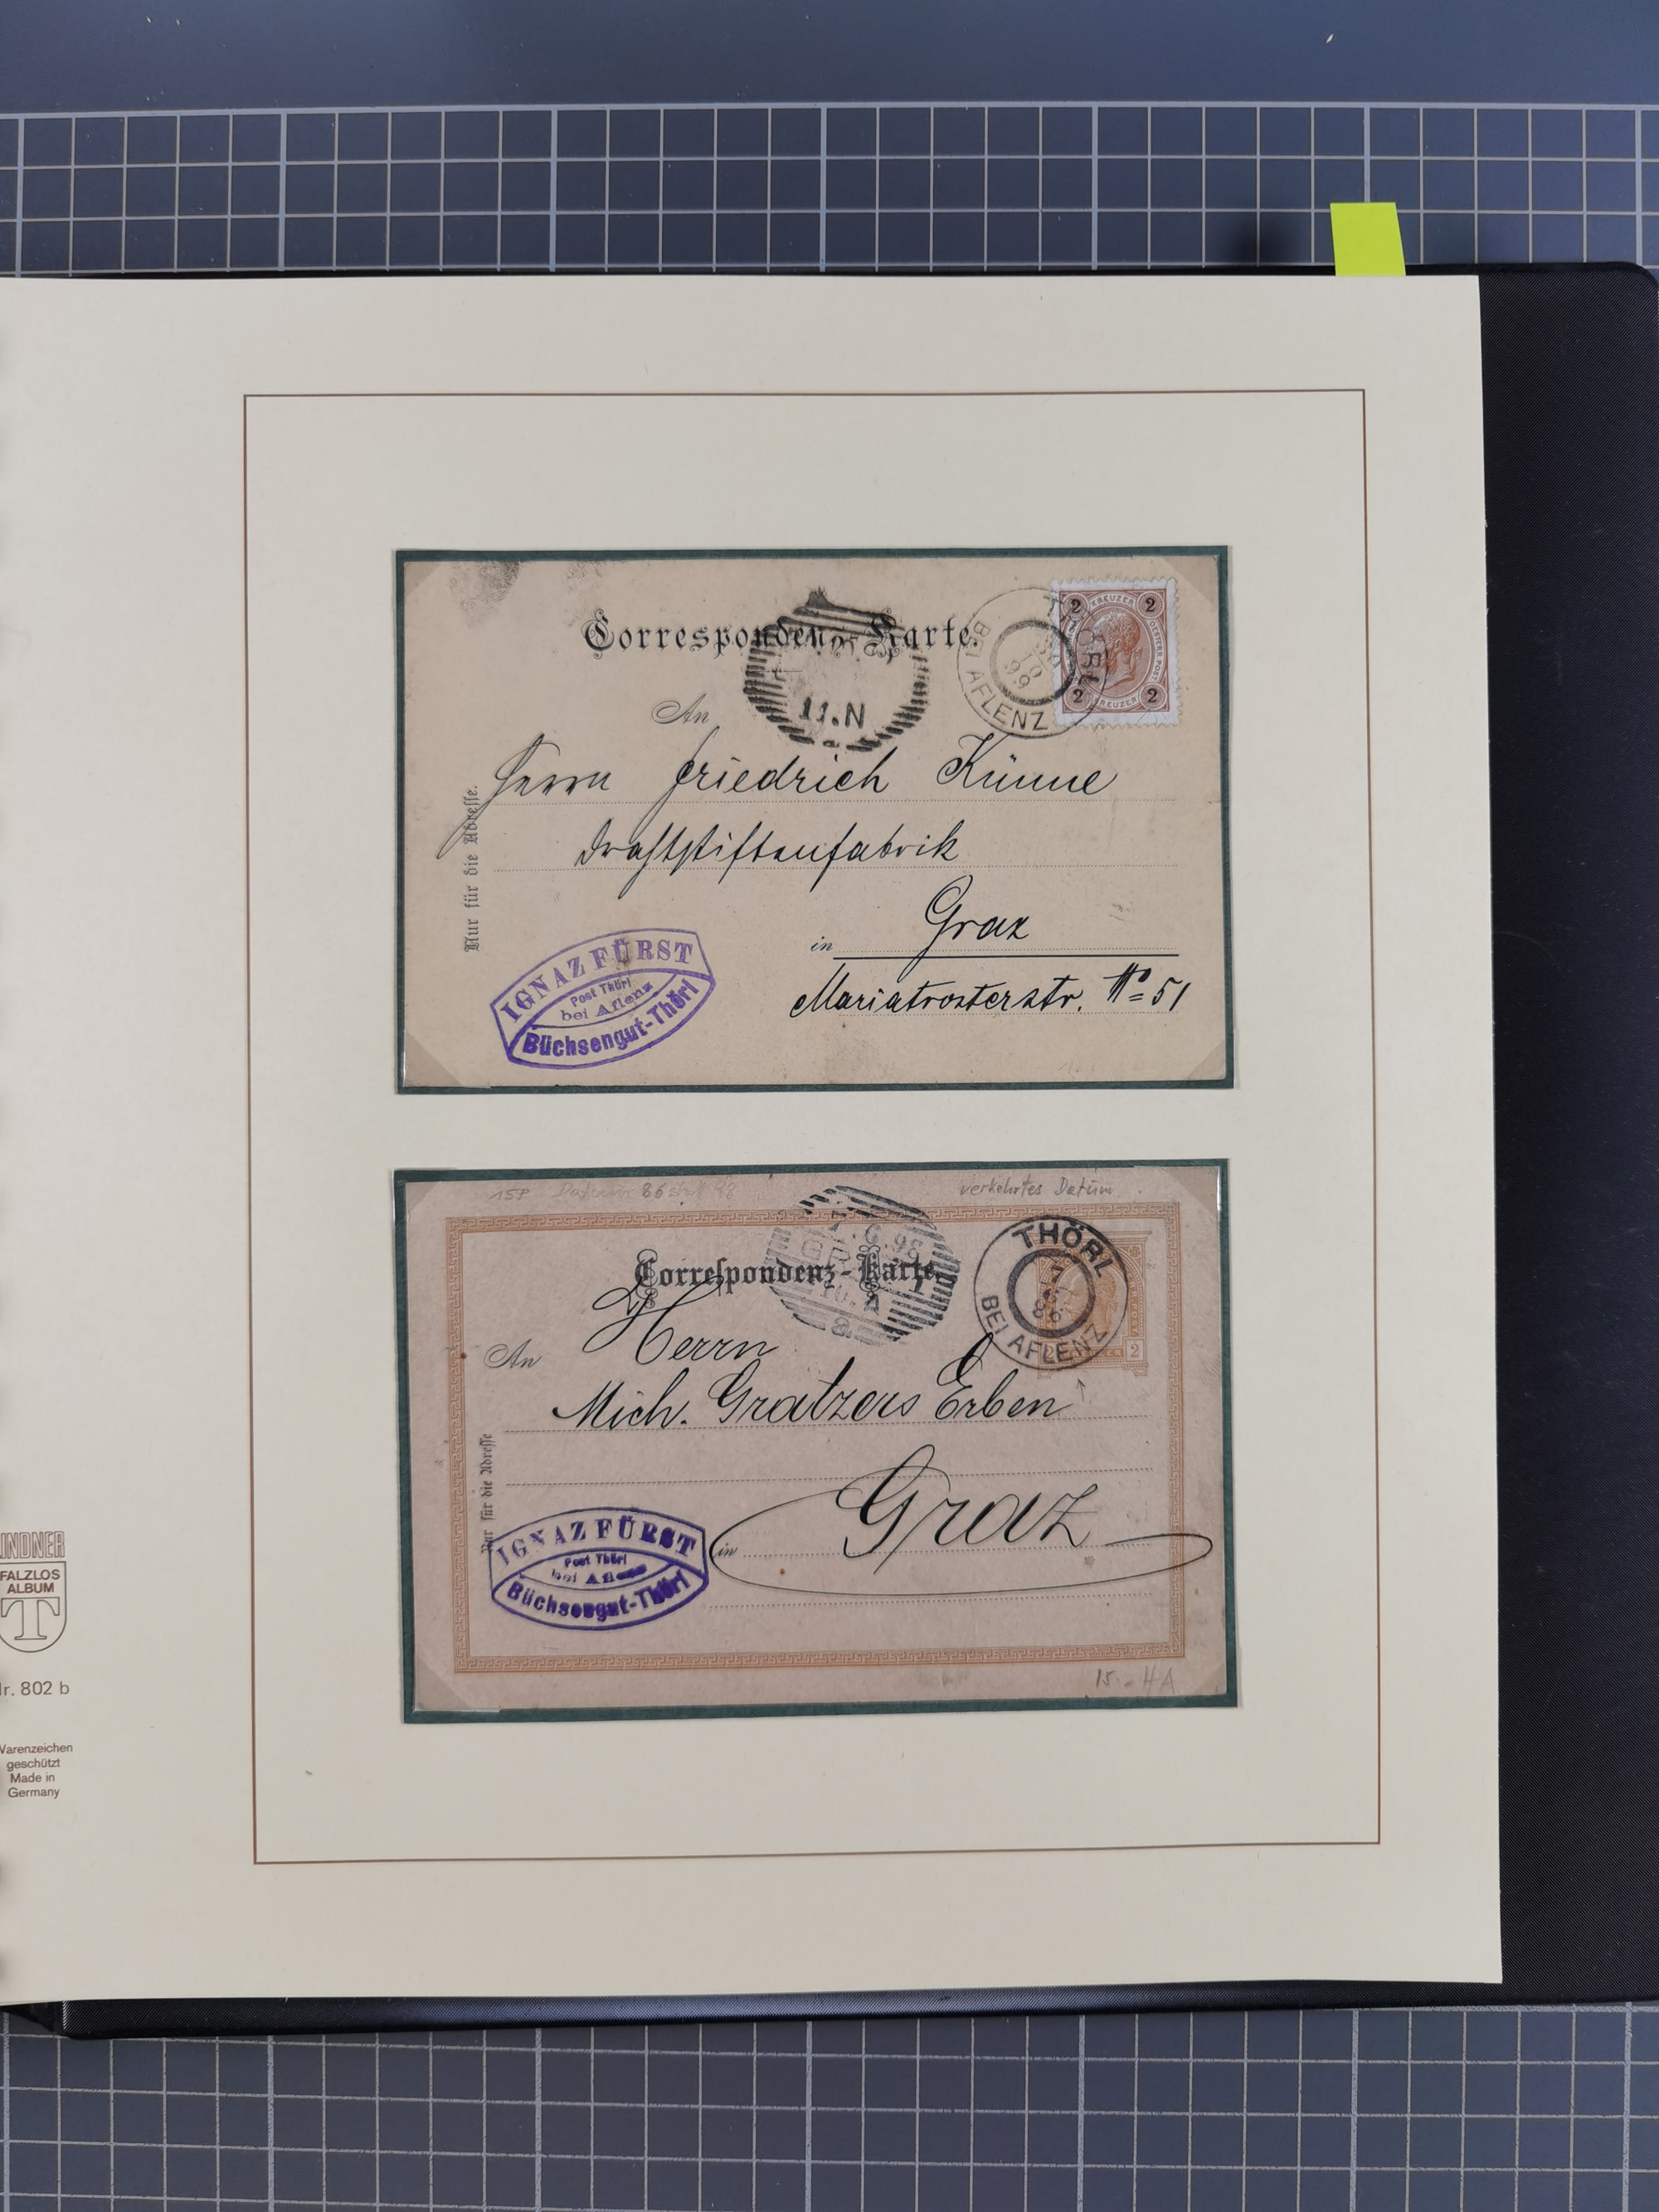 Correspondenz-Karte.
2 KREUZER 2
OESTERR. POST.
2 KREUZER 2
THÖRL
BEI AFLENZ
99
11.N
An
Herrn Friedrich Künne
Drahtstiftenfabrik
in Graz
Mariatrosterstr. No 51
Nur für die Adresse.
IGNAZ FÜRST
Post Thörl
bei Aflenz
Büchsengut-Thörl
15P Datum 86 statt 98
verkehrtes Datum
7.6.98
THÖRL
BEI AFLENZ
Correspondenz-Karte.
An Herrn
Mich. Gratzers Erben
in Graz
Nur für die Adresse
IGNAZ FÜRST
Post Thörl
bei Aflenz
Büchsengut-Thörl
2
15.- HA
LINDNER
FALZLOS
ALBUM
T
Nr. 802 b
Warenzeichen
geschützt
Made in
Germany